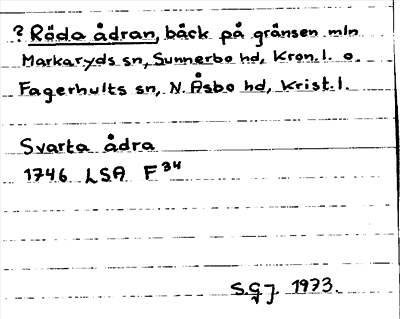 ? Röda ådran, bäck på gränsen mln
Markaryds sn, Sunnerbo hd, Kron. l. o.
Fagerhults sn, N. Åsbo hd, Krist. l.
Svarta ådra
1746 LSA F34
S.G.J. 1973.